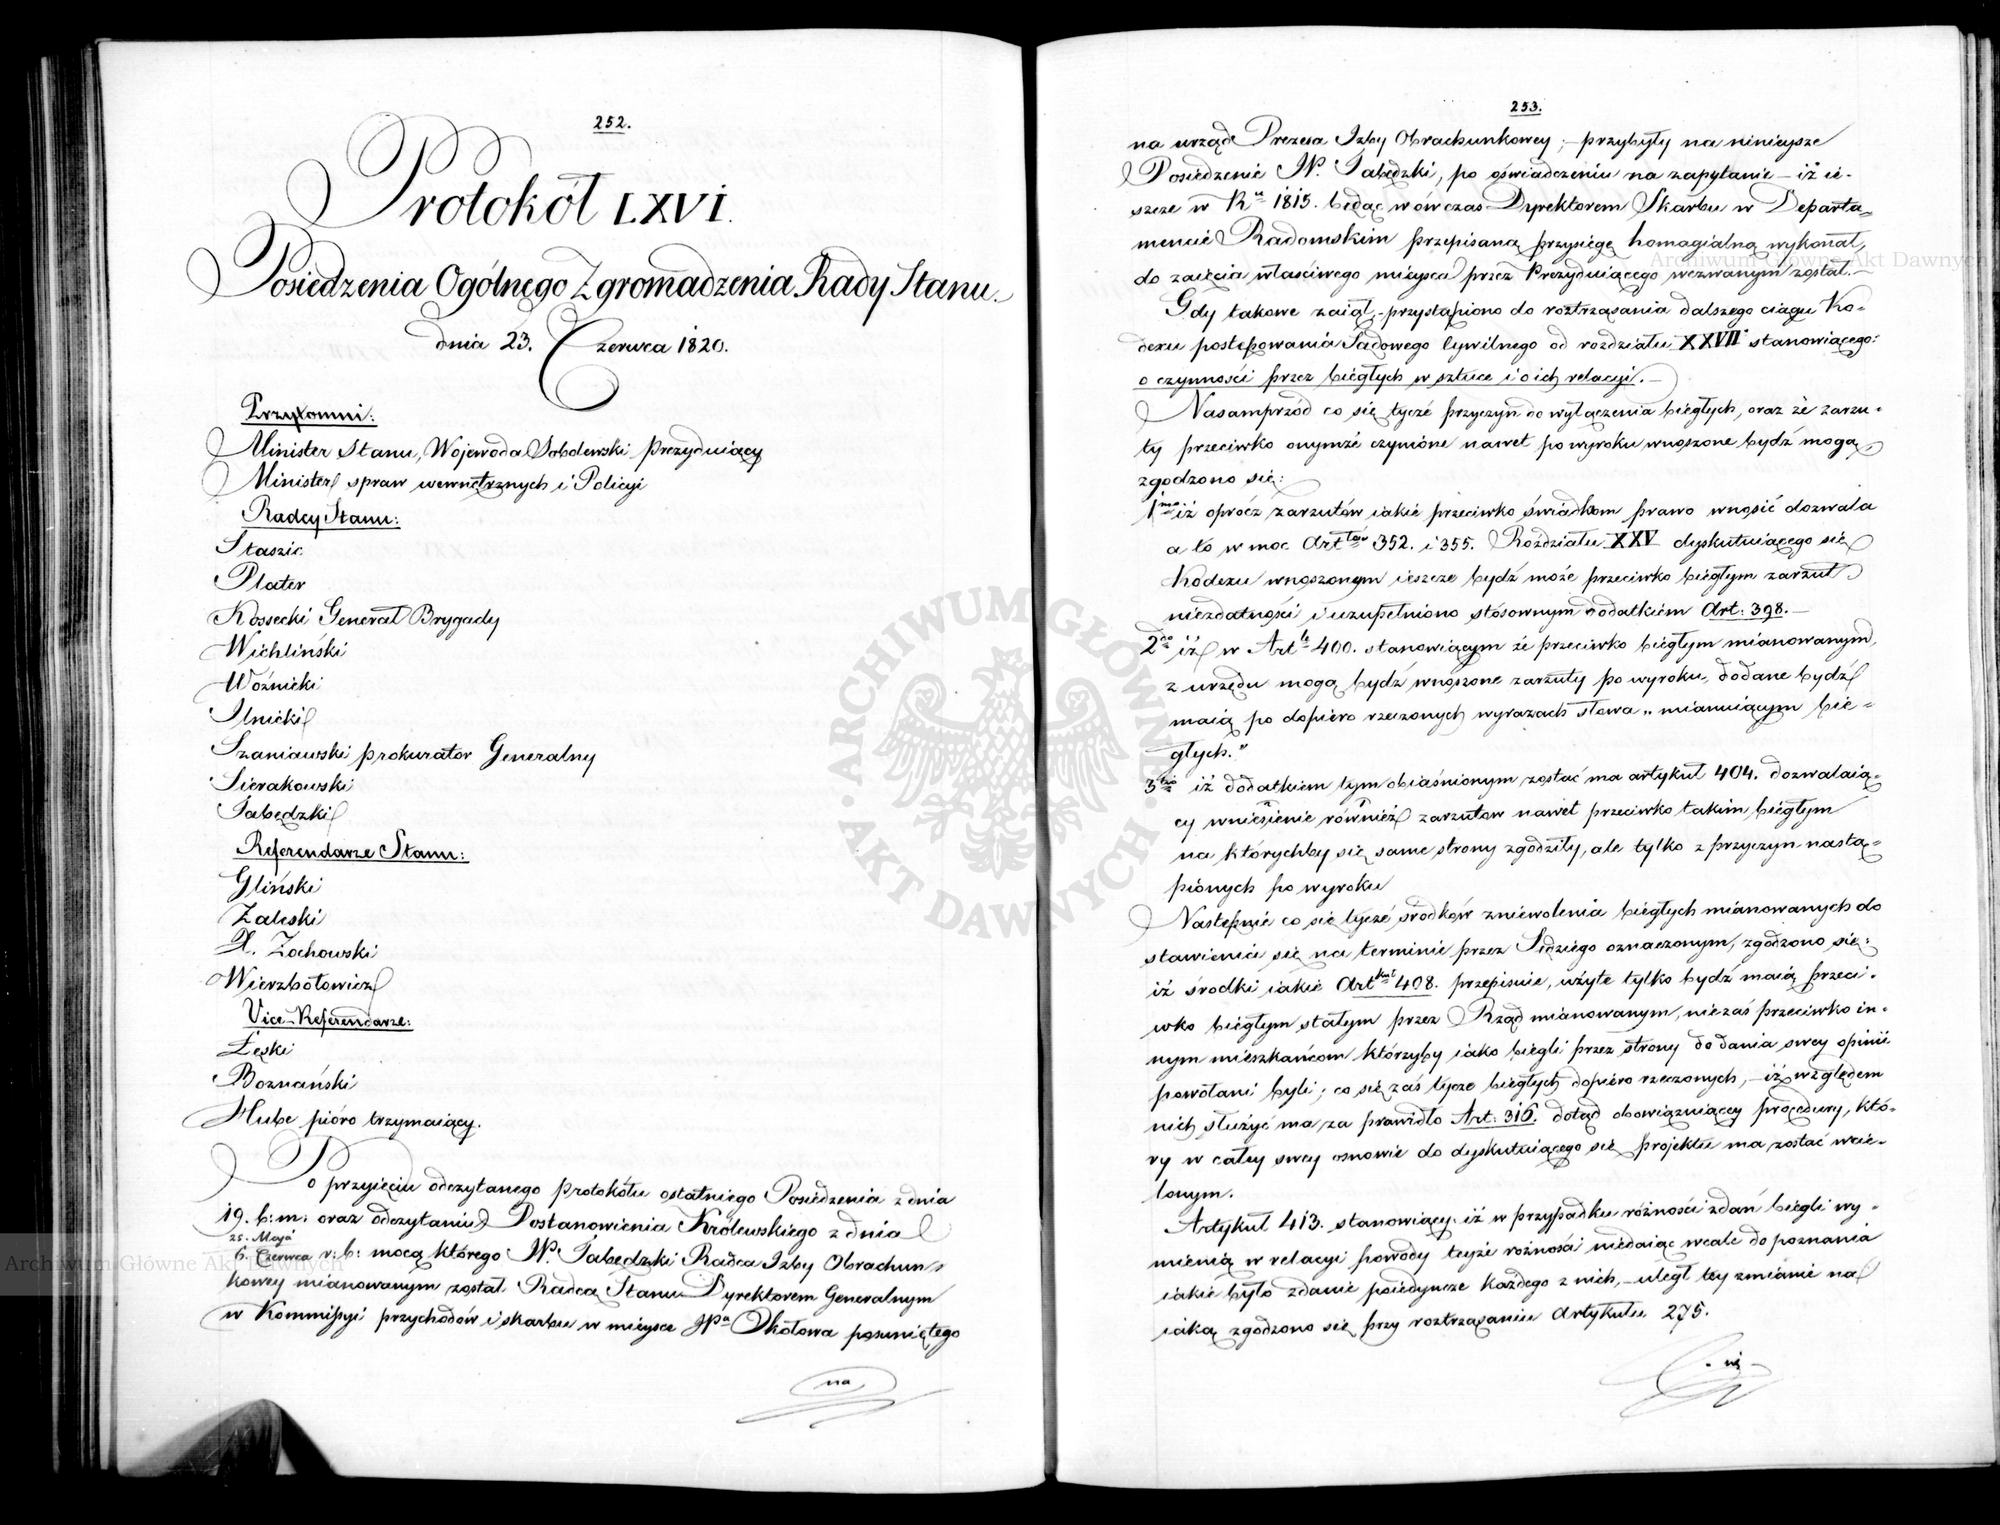 252.
Protokół LXVI.
Posiedzenia Ogólnego Zgromadzenia Rady Stanu.
dnia 23. Czerwca 1820.
Przytomni:
Minister Stanu, Wojewoda Sobolewski Prezyduiący
Minister spraw wewnętrznych i Policyi
Radcy Stanu:
Staszic
Plater
Kossecki Generał Brygady
Wichliński
Woźnicki
Ilnicki
Szaniawski prokurator Generalny
Sierakowski
Łabędzki
Referendarze Stanu:
Gliński
Zaleski
X. Zochowski
Wierzbołowicz
Vice-Referendarze:
Łęski
Boznański
Hube pióro trzymaiący.
Po przyięciu odczytanego protokółu ostatniego Posiedzenia z dnia
19. b: m: oraz odczytaniu Postanowienia Królewskiego z dnia
25. Maja
6. Czerwca r: b: mocą którego JP. Łabędzki Radca Izby Obrachun-
kowey mianowanym został Radcą Stanu Dyrektorem Generalnym
w Kommissyi przychodów i skarbu w mieysce JPa Okołowa posuniętego
na
253.
na urząd Prezesa Izby Obrachunkowey; – przybyły na ninieysze
Posiedzenie JP. Łabędzki, po oświadczeniu na zapytanie – iż ie-
szcze w Ru 1815. będąc wówczas Dyrektorem Skarbu w Departa-
mencie Radomskim przepisaną przysięgę homagialną wykonał,
do zaięcia właściwego mieysca przez Prezyduiącego wezwanym został. –
Gdy takowe zaiął, – przystąpiono do roztrząsania dalszego ciągu Ko-
dexu postępowania Sądowego Cywilnego od rozdziału XXVII stanowiącego:
o czynności przez biegłych w sztuce i o ich relacyi. –
Nasamprzód co się tycze przyczyn do wyłączenia biegłych, oraz że zarzu-
ty przeciwko onymże czynione nawet po wyroku wnoszone bydź mogą,
zgodzono się:
1mo iż oprócz zarzutów iakie przeciwko świadkom prawo wnosić dozwala
a to w moc Arttów 352. i 355. Rozdziału XXV dyskutuiącego się
Kodexu wnoszonym ieszcze bydź może przeciwko biegłym zarzut
niezdatności i uzupełniono stósownym dodatkiem Art: 398. –
2do iż w Artle 400. stanowiącym że przeciwko biegłym mianowanym
z urzędu mogą bydź wnoszone zarzuty po wyroku, dodane bydź
maią po dopiero rzeczonych wyrazach słowa „mianuiącym bie-
głych."
3tio iż dodatkiem tym obiaśnionym zostać ma artykuł 404. dozwalaią-
cy wniesienie również zarzutów nawet przeciwko takim biegłym
na którychby się same strony zgodziły, ale tylko z przyczyn nastą-
pionych po wyroku
Następnie co się tycze środków zniewolenia biegłych mianowanych do
stawienia się na terminie przez Sędziego oznaczonym, zgodzono się:
iż środki iakie Artkuł 408. przepisuie, użyte tylko bydź maią przeci-
wko biegłym stałym przez Rząd mianowanym, niezaś przeciwko in-
nym mieszkańcom którzyby iako biegli przez strony do dania swey opinii
powołani byli; co się zaś tycze biegłych dopiero rzeczonych, – iż względem
nich służyć ma za prawidło Art: 316. dotąd obowiązuiącey procedury, któ-
ry w całey swey osnowie do dyskutuiącego się projektu ma zostać wcie-
lonym.
Artykuł 413. stanowiący: iż w przypadku różności zdań biegli wy-
mienią w relacyi powody teyże różności niedaiąc wcale do poznania
iakie było zdanie poiedyncze każdego z nich, – uległ tey zmianie na
iaką zgodzono się przy roztrząsaniu Artykułu 275.
Archiwum Główne Akt Dawnych
Archiwum Główne Akt Dawnych
ARCHIWUM GŁÓWNE AKT DAWNYCH